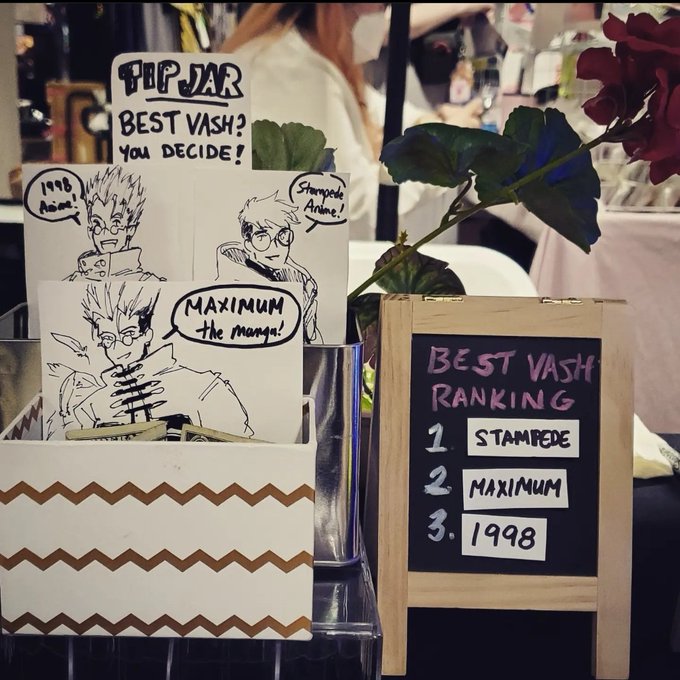 TIP JAR
BEST VASH?
YOU DECIDE!
1998
Anime!
Stampede
Anime!
MAXIMUM
the manga!
BEST VASH
RANKING
1. STAMPEDE
2. MAXIMUM
3. 1998